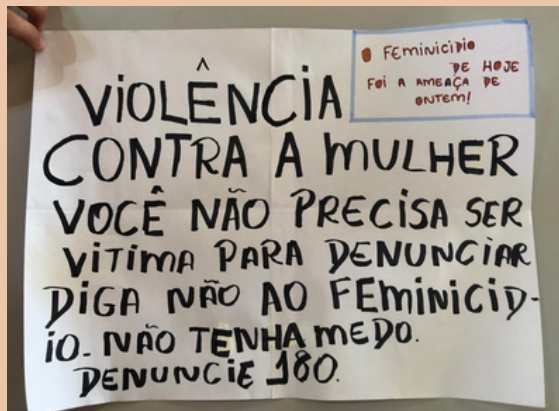 O FEMINICIDIO
DE HOJE
FOI A AMEAÇA DE
ONTEM!
VIOLÊNCIA
CONTRA A MULHER
VOCÊ NÃO PRECISA SER
VITIMA PARA DENUNCIAR
DIGA NÃO AO FEMINICID-
IO. NÃO TENHA MEDO.
DENUNCIE 180.